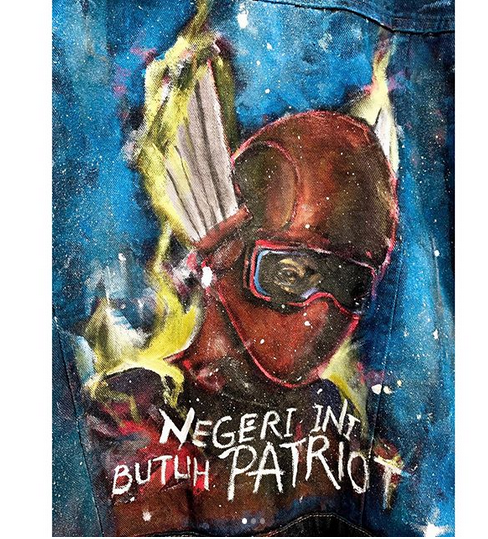 NEGERI INI
BUTUH PATRIOT